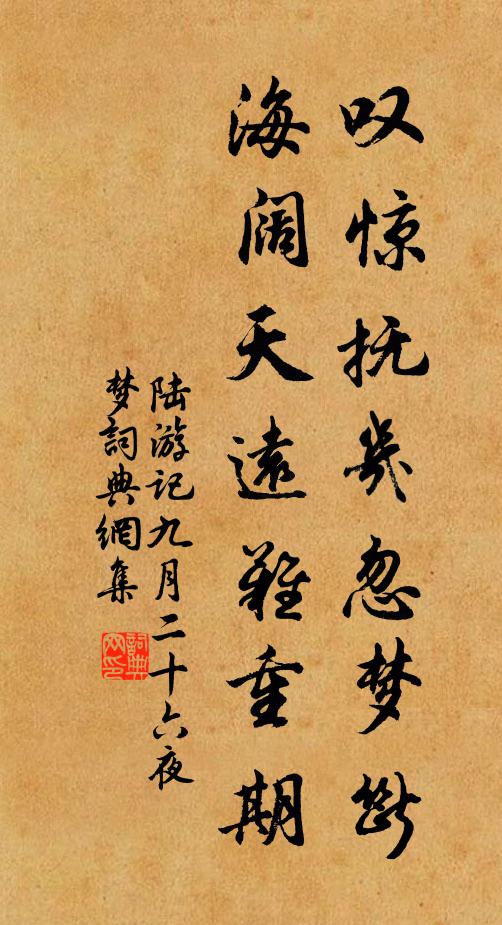 叹惊抚几忽梦断
海阔天遠難重期
陆游记九月二十六夜
梦詞典網集
詞典网印